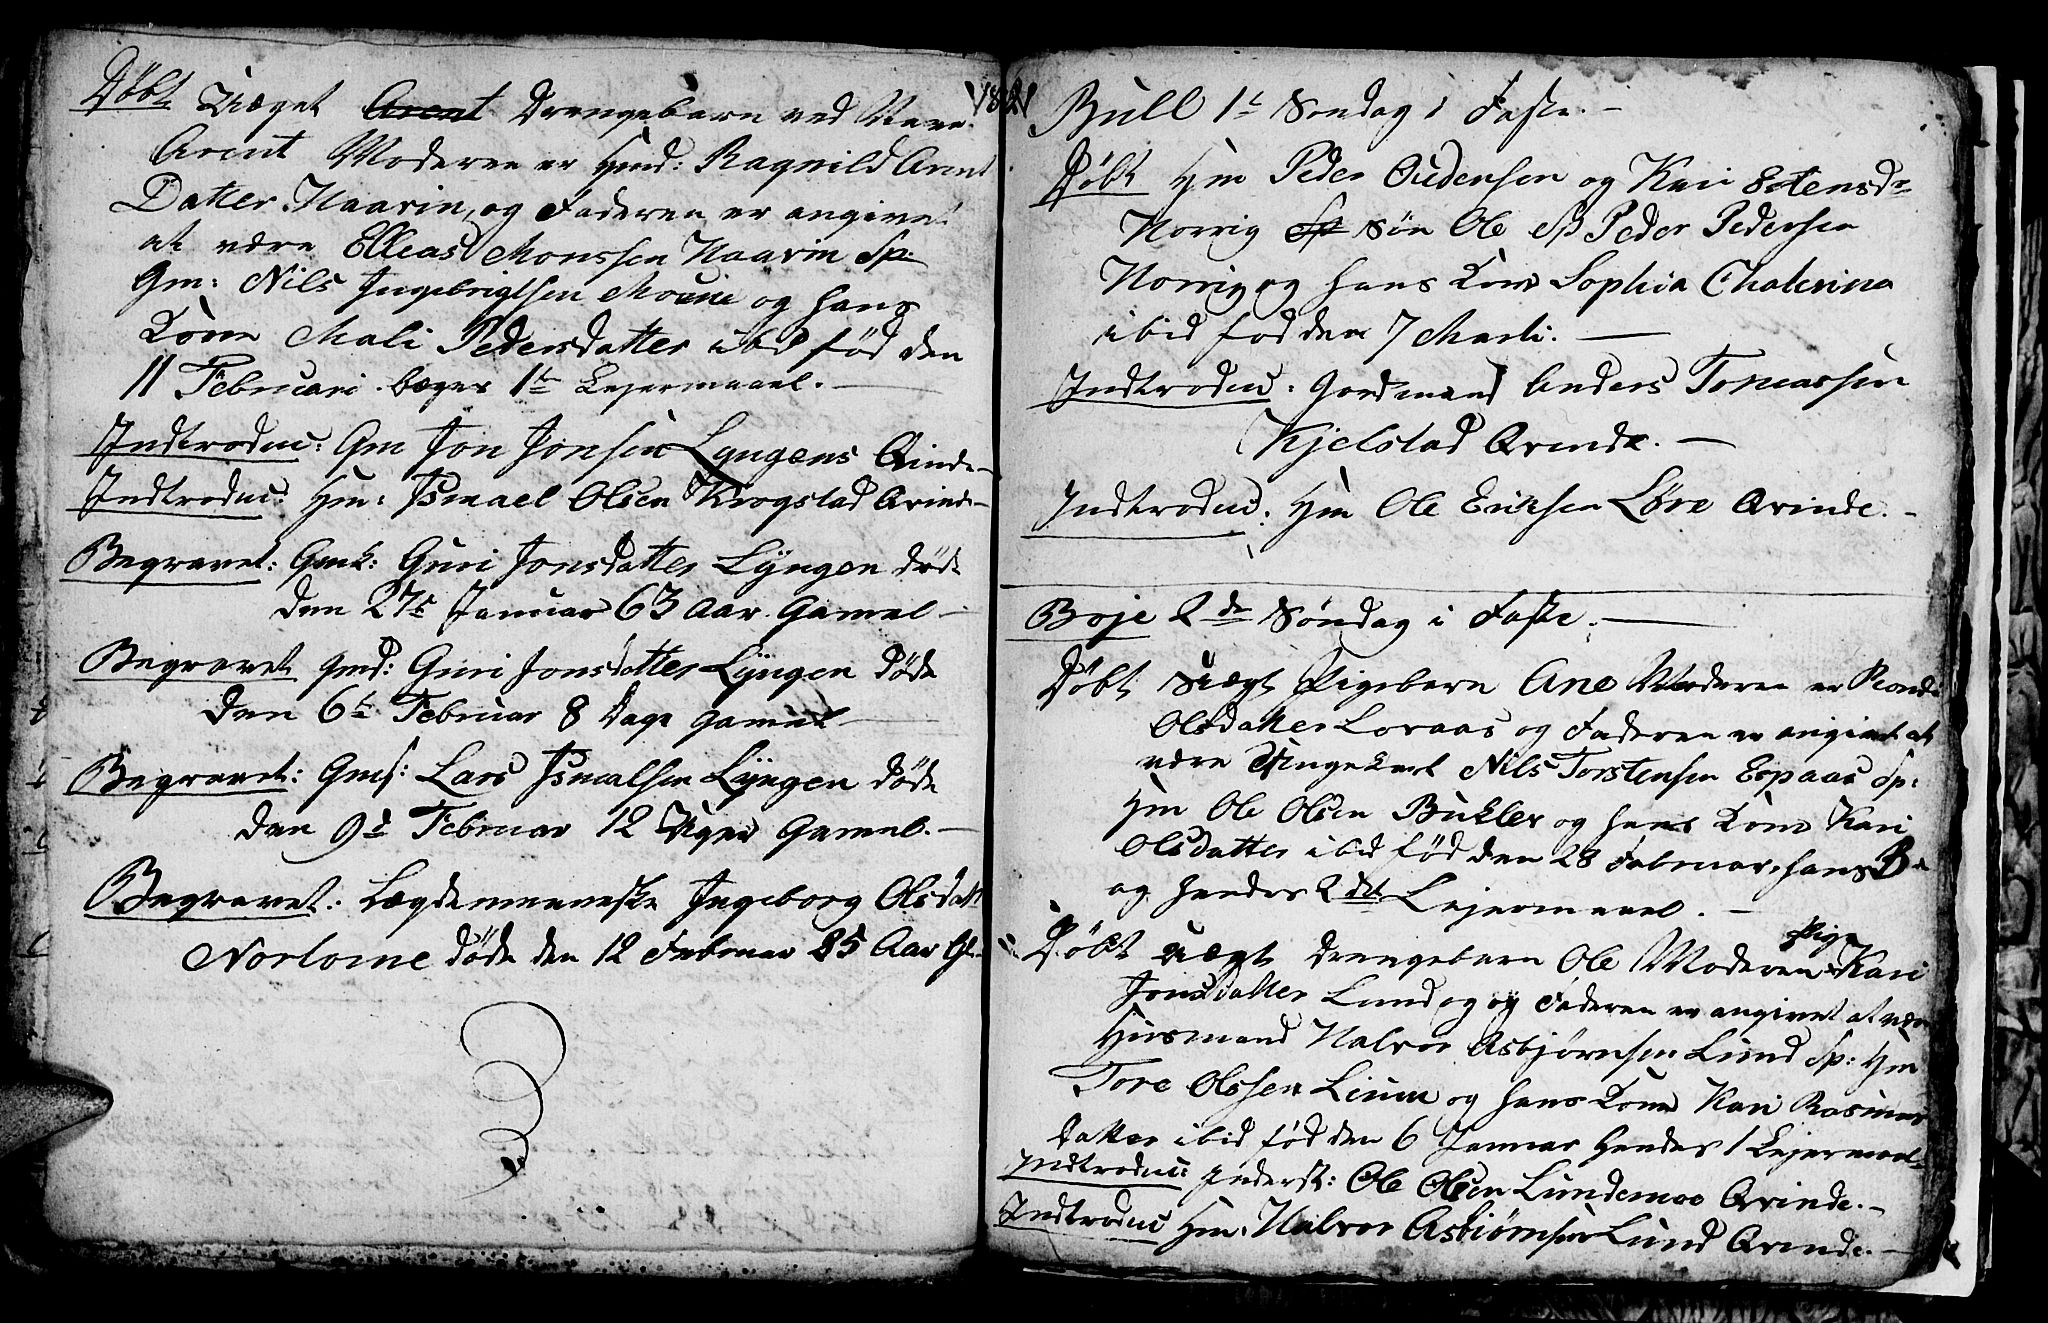 Døbt Uægt Arent Drengebarn ved Navn
Arent Moderen er Hmd: Ragnild Arent
Datter Haarin, og Faderen er angivet
at være Ellias Monssen Haarin Sp:
Gm: Nils Ingebrigtsen Moune og hans
Kone Mali Pedersdatter ibid fød den
11 Februari begges 1te Lejermaael.
Indtroduc: Gm Jon Jonsen Lyngens Qvinde
Indtroduc: Hm: Ismael Olsen Krogstad Qvinde
Begravet: Gmk: Guri Jonsdatter Lyngen døde
den 27de Januar 63 Aar Gamel
Begravet Gmd: Guri Jonsdatter Lyngen døde
den 6te Februar 8 Dage gamel
Begravet: Gmf: Lars Ismalsen Lyngen døde
den 9de Februar 12 Uger Gamel.
Begravet: Lægdemmeneske Ingeborg Olsdatt
Norlorne døde den 12 Februar 85 Aar Gl
182
Bull 1te Søndag i Faste.
Døbt Hm Peder Oudensen og Kari Stensdr
Horrig Sp Søn Ole Sp Peder Pedersen
Horrig og hans Kone Sophia Chaterina
ibid fød den 7 Marti.
Indtroduc: Gordmand Anders Tomassen
Kjelstad Qvinde.
Indtroduc: Hm Ole Eriksen Løre Qvinde.
Boje 2den Søndag i Faste.
Døbt Uægt Pigebarn Ane Moderen er
Olsdatter Loraas og Faderen er angivet at
være Ungekarl Nils Torstensen Espaas Sp:
Hm Ole Olsen Bukler og hans Kone Kari
Olsdatter ibid fød den 28 Februar, hans
og hendes 2det Lejermaael.
Pige
Døbt uægt Drengebarn Ole Moderen Kari
Jonsdatter Lund og og Faderen er angivet at være
Husmand Halvor Asbjørnsen Lund Sp: Hm
Tore Olssen Lium og hans Kone Kari Rasmus
datter ibid fød den 6 Januar hendes 1 Lejermael
Indtroduc: Inderst: Ole Olsen Lundemoe Qvinde.
Indtroduc Hm: Halvor Asbiørnsen Lund Qvinde.